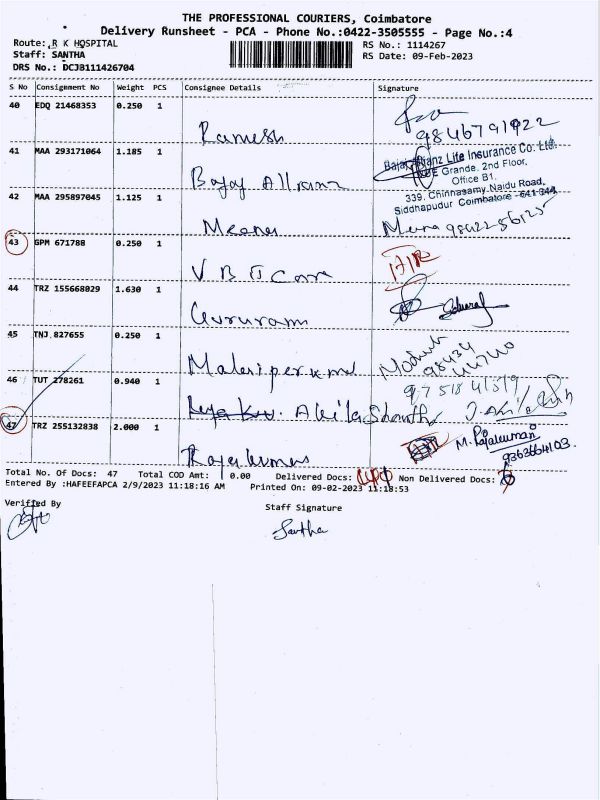 THE PROFESSIONAL COURIERS, Coimbatore
Delivery Runsheet - PCA - Phone No.:0422-3505555 - Page No.:4
Route: R K HOSPITAL
RS No.: 1114267
Staff: SANTHA
RS Date: 09-Feb-2023
DRS No.: DCJB111426704
S No Consignment No Weight PCS Consignee Details Signature
40 EDQ 21468353 0.250 1 Ramesh
9846791922
41 MAA 293171064 1.185 1 Bajaj Allianz
Bajaj Allianz Life Insurance Co. Ltd.
Grande, 2nd Floor,
Office B1,
339, Chinnasamy Naidu Road,
Siddhapudur Coimbatore - 641 044
42 MAA 295897045 1.125 1 Meena
43 GPM 671788 0.250 1
44 TRZ 155668029 1.630 1 Gururam
45 TNJ 827655 0.250 1
46 TUT 278261 0.940 1 Akila Shantha
47 TRZ 255132838 2.000 1 Rajakumar
M. Rajakumari
9363664103.
Total No. Of Docs: 47 Total COD Amt: 0.00 Delivered Docs: Non Delivered Docs:
Entered By :HAFEEFAPCA 2/9/2023 11:18:16 AM Printed On: 09-02-2023 11:18:53
Verified By
Staff Signature
Santha